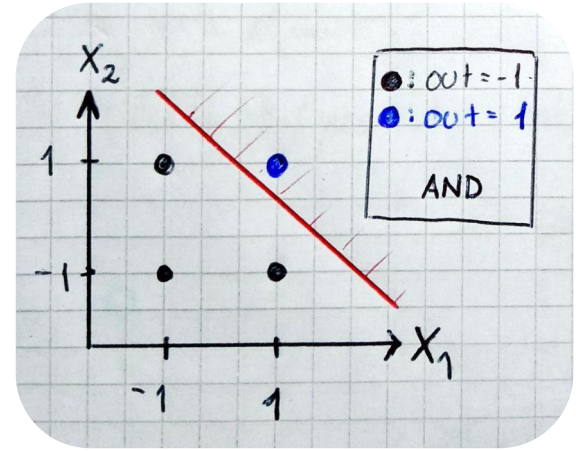 X₂
1
-1
-1
1
X₁
●: out=-1
●: out= 1
AND